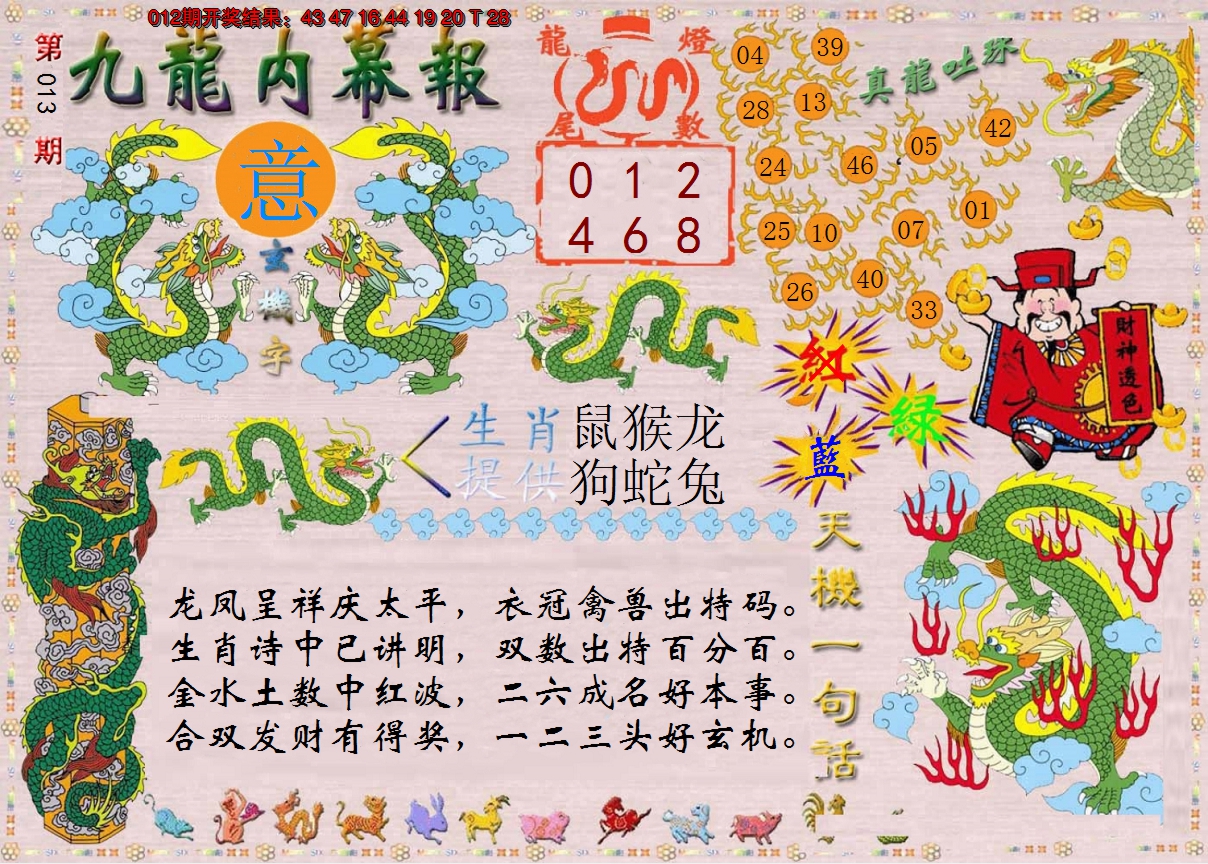 012期开奖结果：43 47 16 44 19 20 T 28
第013期
九龍内幕報
意
玄機字
龍燈
尾數
0 1 2
4 6 8
真龍吐珠
04
39
28
13
05
42
24
46
25
10
07
01
26
40
33
財神透色
紅
綠
藍
生肖 鼠猴龙
提供 狗蛇兔
天機一句话
龙凤呈祥庆太平，衣冠禽兽出特码。
生肖诗中已讲明，双数出特百分百。
金水土数中红波，二六成名好本事。
合双发财有得奖，一二三头好玄机。